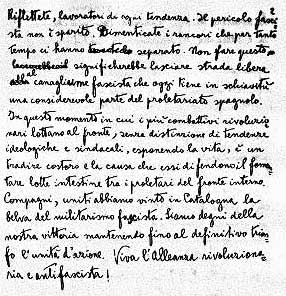 Riflettete, lavoratori di ogni tendenza. Il pericolo fasci
sta non è sparito. Dimenticate i rancori che per tanto
tempo ci hanno separato. Non fare questo,
significherebbe lasciare strada libera
al canaglismo fascista che oggi tiene in schiavitù
una considerevole parte del proletariato spagnolo.
In questo momento in cui i più combattivi rivoluzio
nari lottano al fronte, senza distinzione di tendenze
ideologiche e sindacali, esponendo la vita, è un
tradire costoro e la causa che essi difendono il fomen
tare lotte intestine tra i proletari del fronte interno.
Compagni, uniti abbiamo vinto in Catalogna la
belva del militarismo fascista. Siamo degni della
nostra vittoria mantenendo fino al definitivo trion
fo l'unità d'azione. Viva l'Alleanza rivoluziona=
ria e antifascista!